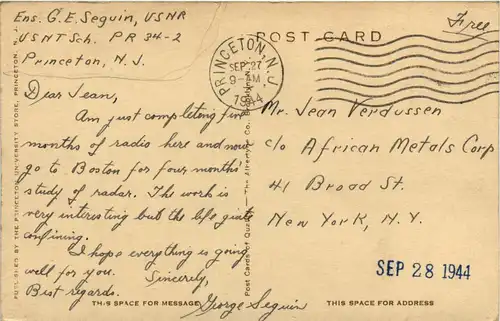 Ens. G. E. Seguin, USNR
USNT Sch. PR 34-2
Princeton, N. J.
Dear Jean,
Am just completing five
months of radio here and now
go to Boston for four months'
study of radar. The work is
very interesting but the life quite
confining.
I hope everything is going
well for you. Sincerely,
Best regards. George Seguin
THIS SPACE FOR MESSAGE
PUBLISHED BY THE PRINCETON UNIVERSITY STORE, PRINCETON, N. J.
Post Cards of Quality. — The Albertype Co., Brooklyn, N. Y.
POST CARD
Free
PRINCETON, N.J.
SEP 27
9 - AM
1944
Mr. Jean Verdussen
c/o African Metals Corp
41 Broad St.
New York, N.Y.
SEP 28 1944
THIS SPACE FOR ADDRESS